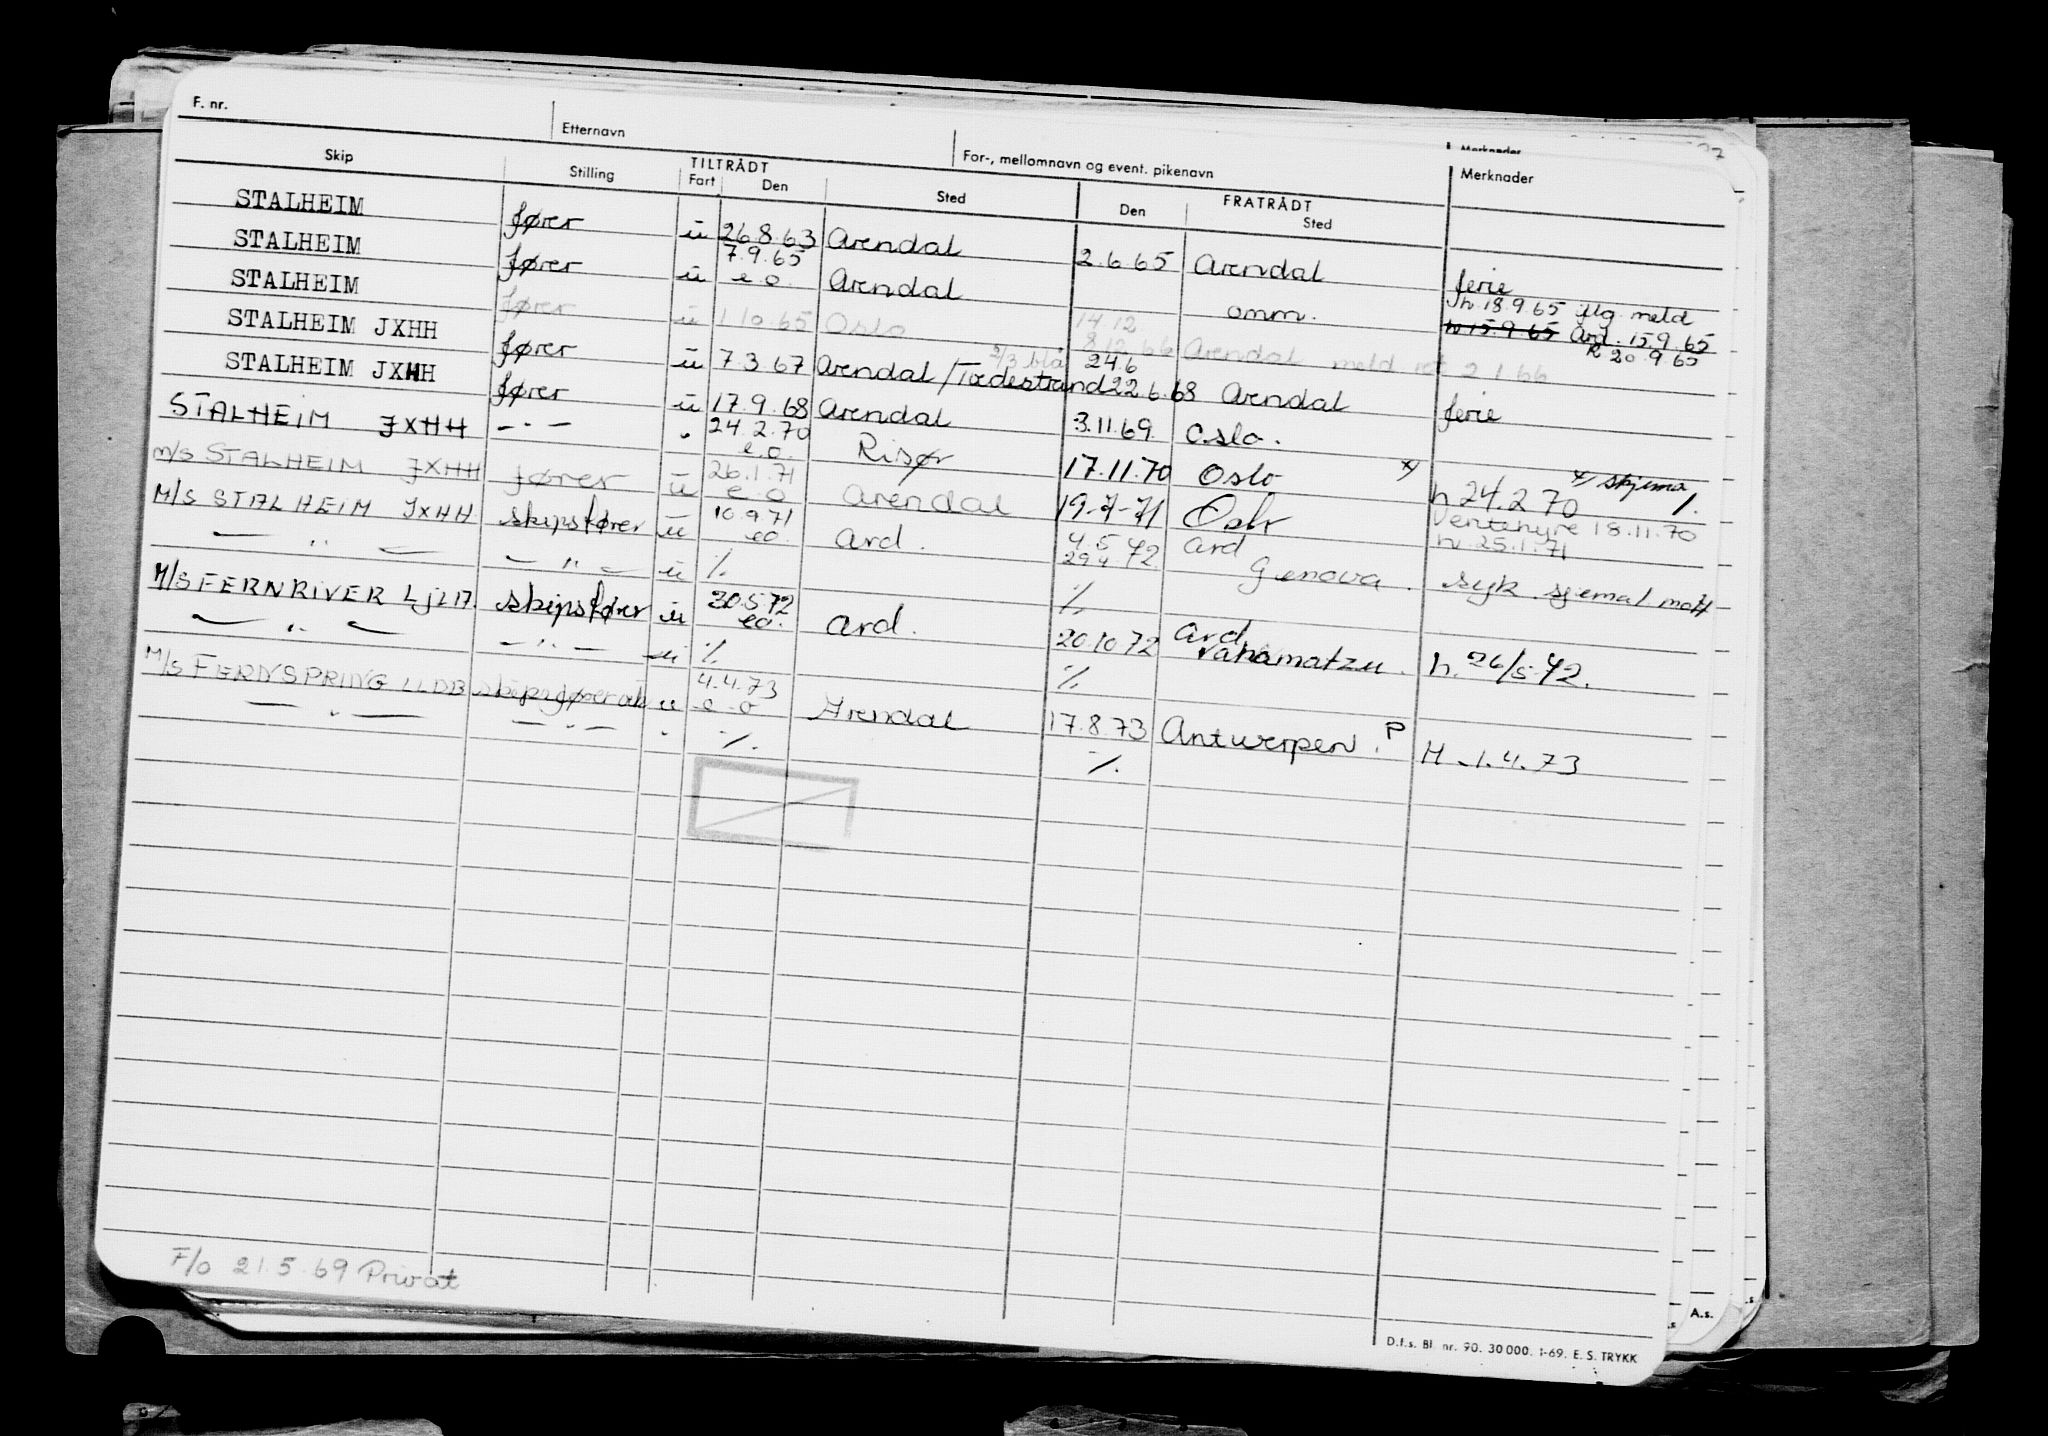 F. nr.
Etternavn
For-, mellomnavn og event. pikenavn
Merknader
Skip
Stilling
TILTRÅDT
Fart
Den
Sted
FRATRÅDT
Den
Sted
Merknader
STALHEIM fører u 26.8.63 Arendal 2.6.65 Arendal ferie
STALHEIM fører u 7.9.65 e.o. Arendal omm. h. 18.9.65 meld
h 15.9.65 Ard. 15.9.65
STALHEIM fører u 1.10.65 Oslo 14.12 8.12.66 Arendal meld 2.1.66 R 20.9.65
STALHEIM JXHH fører u 7.3.67 Arendal/Tvedestrand 2/3 blå 24.6 22.6.68 Arendal ferie
STALHEIM JXHH fører u 17.9.68 Arendal 3.11.69 Oslo.
STALHEIM JXHH -"- " 24.2.70 e.o. Risør 17.11.70 Oslo x) h 24.2.70 x) skjema
M/S STALHEIM JXHH fører u 26.1.71 e.o Arendal 19-7-71 Oslo Ventehyre 18.11.70
h. 25.1.71
M/S STALHEIM JXHH skipsfører u 10.9.71 eo. Ard. 4.5.72 29.4 Ard Genova. syk
— " — — " — u %. %.
M/S FERNRIVER LJLI7. skipsfører u 30.5.72 eo. Ard. 20.10.72 Ard h. 26/5-72.
— " — — " — u %. %.
M/S FERNSPRING LLDB skipsfører u 4.4.73 e-o Arendal 17.8.73 Antwerpen. P H-1.4.73
— " — — " — " %. %.
F/o 21.5.69 Privat
A.s.
D.f.s. Bl. nr. 90. 30 000. 1-69. E. S. TRYKK